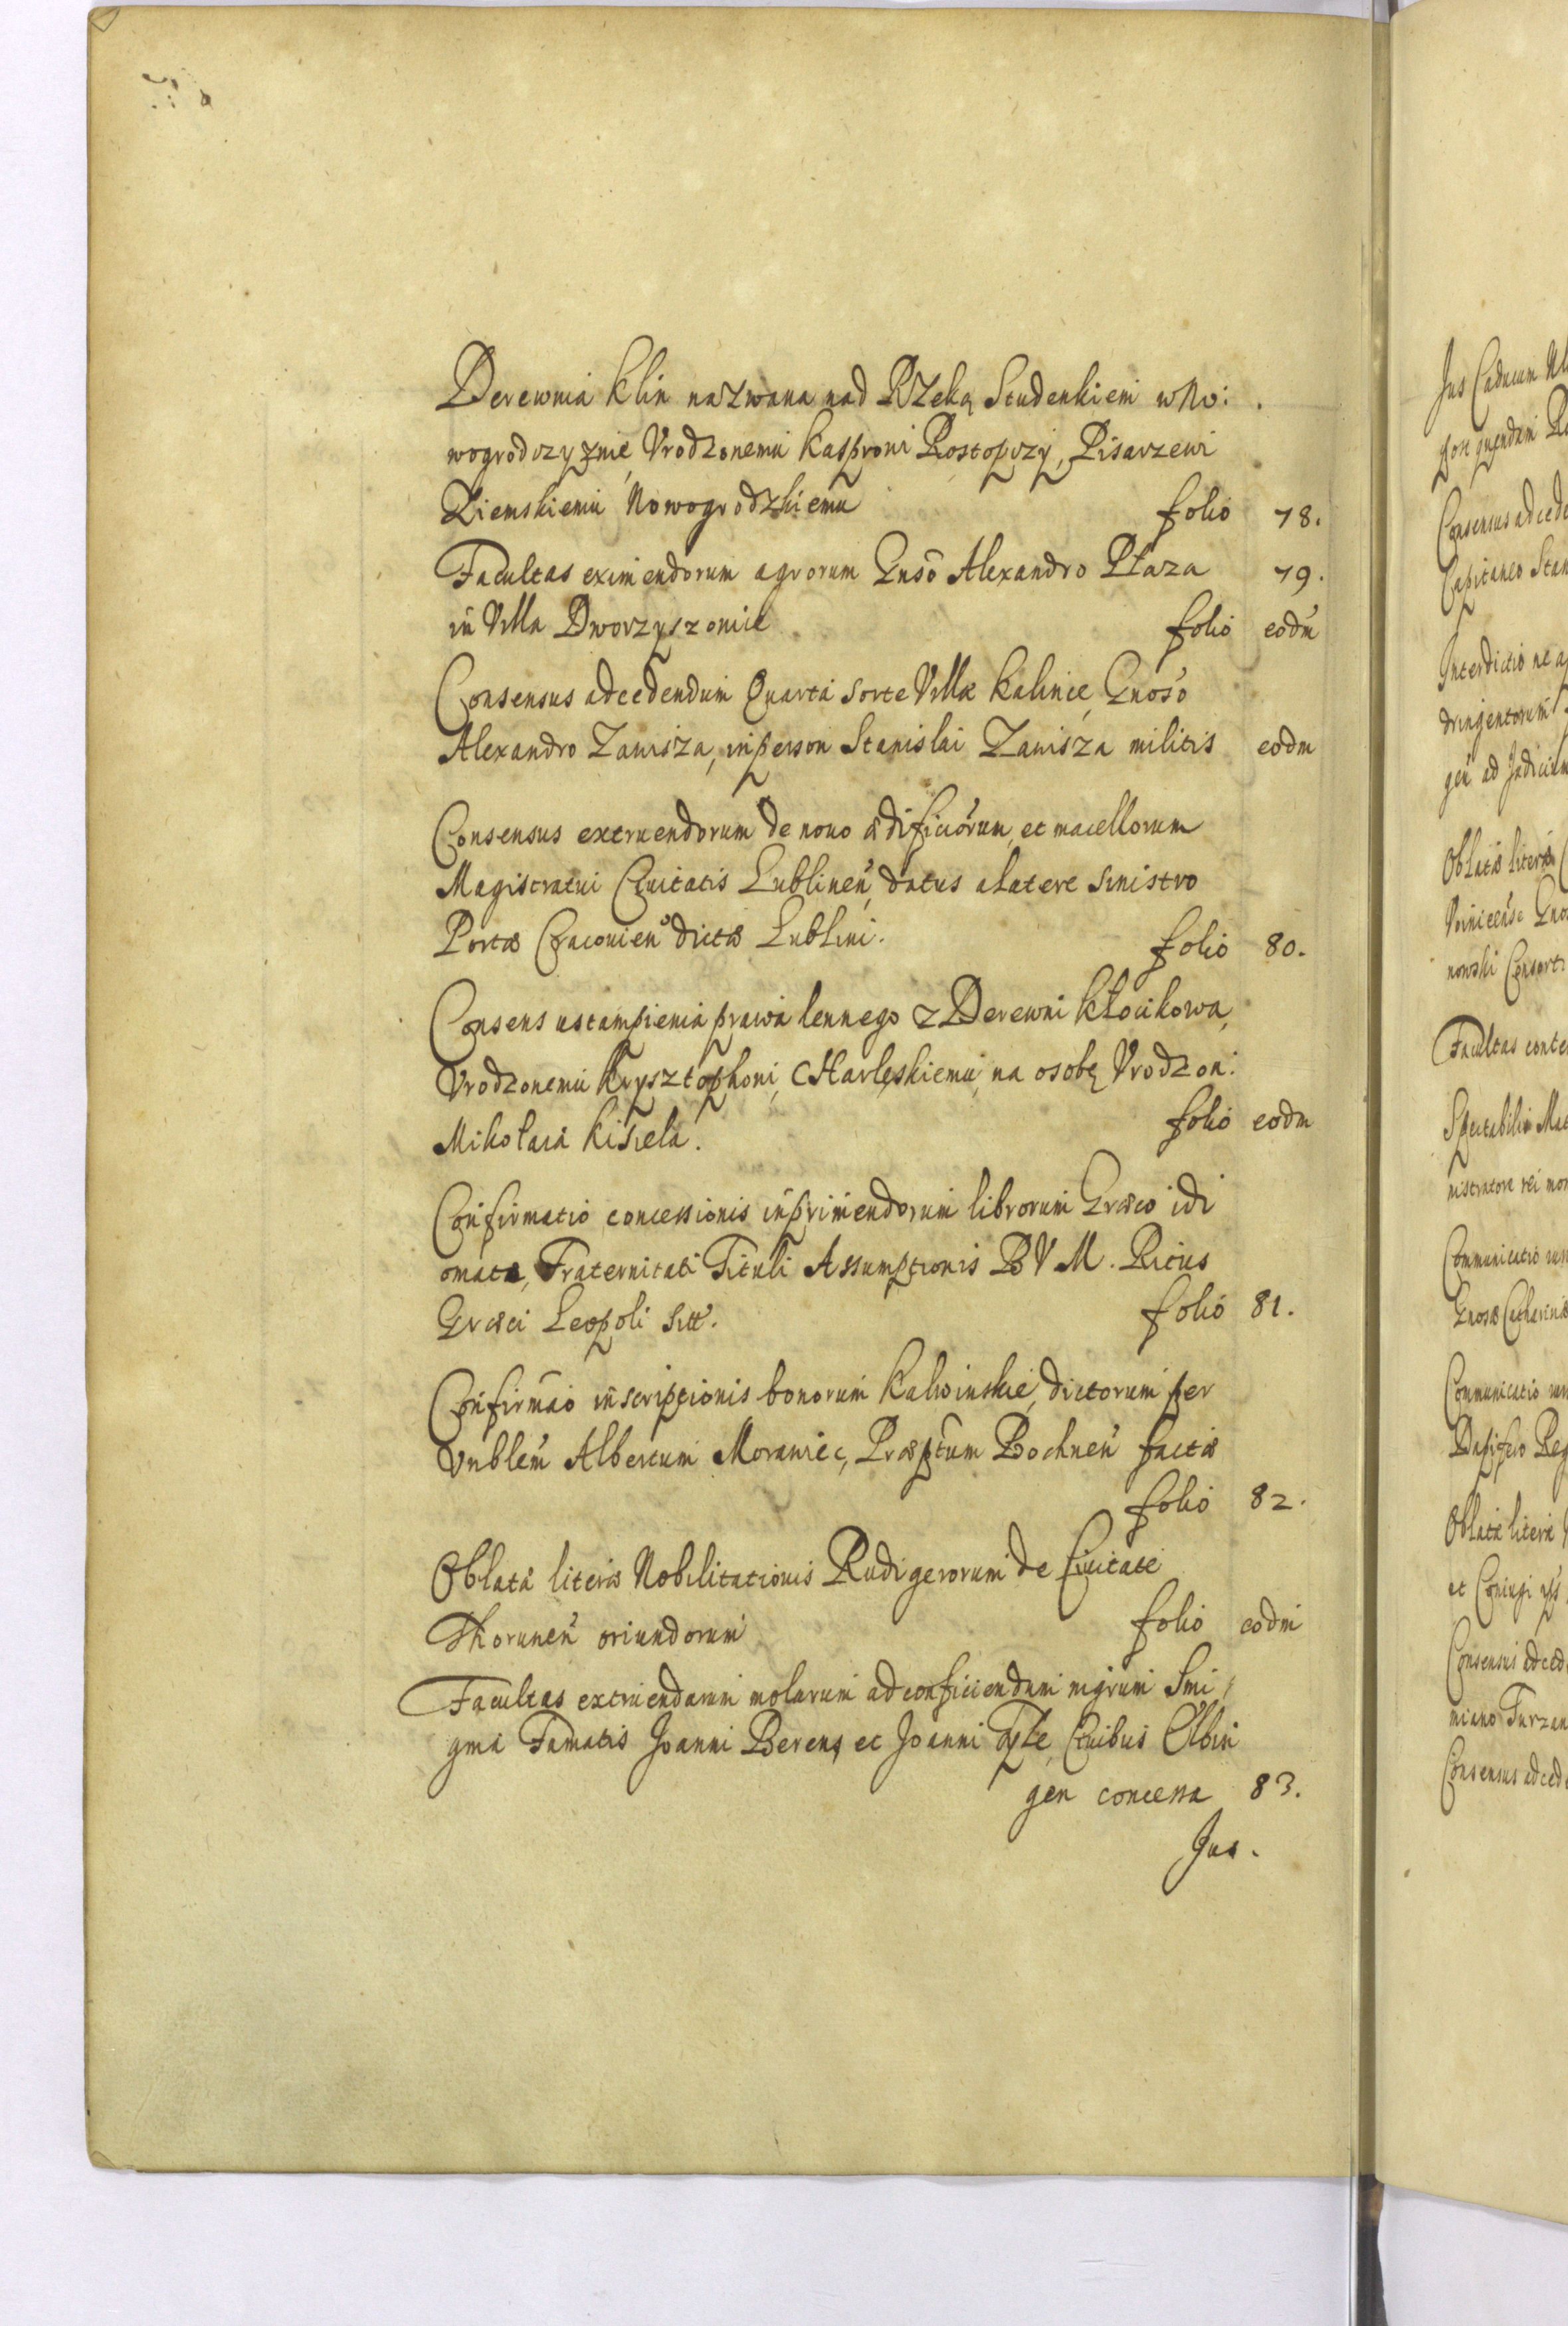 Derewnia Klin nazwana nad Rzeką Studenkiem w No:
wogrodczyznie, Vrodzonemu Kasprowi Rostopczy, Pisarzewi
Ziemskiemu Nowogrodzkiemu folio 78.
Facultas eximendorum agrorum Gnso Alexandro Płaza 79.
in Villa Dworzyszowie folio eodm
Consensus ad cedendum Quarta sorte Villæ Kalince, Gnoso
Alexandro Zawisza, in person Stanislai Zawisza militis eodm
Consensus extruendorum de nouo ædificiorum, et macellorum
Magistratui Ciuitatis Lublinen, datus a latere sinistro
Portæ Cracouien dictæ Lublini. folio 80.
Consens ustąmpienia prawa lennego z Derewni Kłocikowa,
Vrodzonemu Krysztophowi, CHarlęskiemu, na osobę Vrodzon:
Mikołaia Kisiela. folio eodm
Confirmatio concessionis inprimendorum librorum Græco idi
omate, Fraternitati Tituli Assumptionis B V M. Ritus
Græci Leopoli sitt. folio 81.
Confirmao inscriptionis bonorum Kalwinskie, dictorum per
Vnblem Albertum Morawiec, Præptum Bochnen factæ
folio 82.
Oblata literæ Nobilitationis Rudigerorum de Ciuitate
Thorunen oriundorum folio eodm
Facultas extruendarum molarum ad conficiendum nigrum Smi
gma Famatis Joanni Berens et Joanni Tyle, Ciuibus Elbin
gen concessa 83.
Jus.
Jus Caducum
post quendam
Consensus ad cede
Capitaneo Stan
Interdictio ne a
dringentorum
gen ad Judicium
Oblata litera
nowski Consort
Facultas conte
Spectabili
nistratore rei mon
Communicatio
Gnosæ Catharinæ
Communicatio
Dapifero Reg
Oblata litera
et Coniugi
Consensus ad ced
miano Turzan
Consensus ad ced